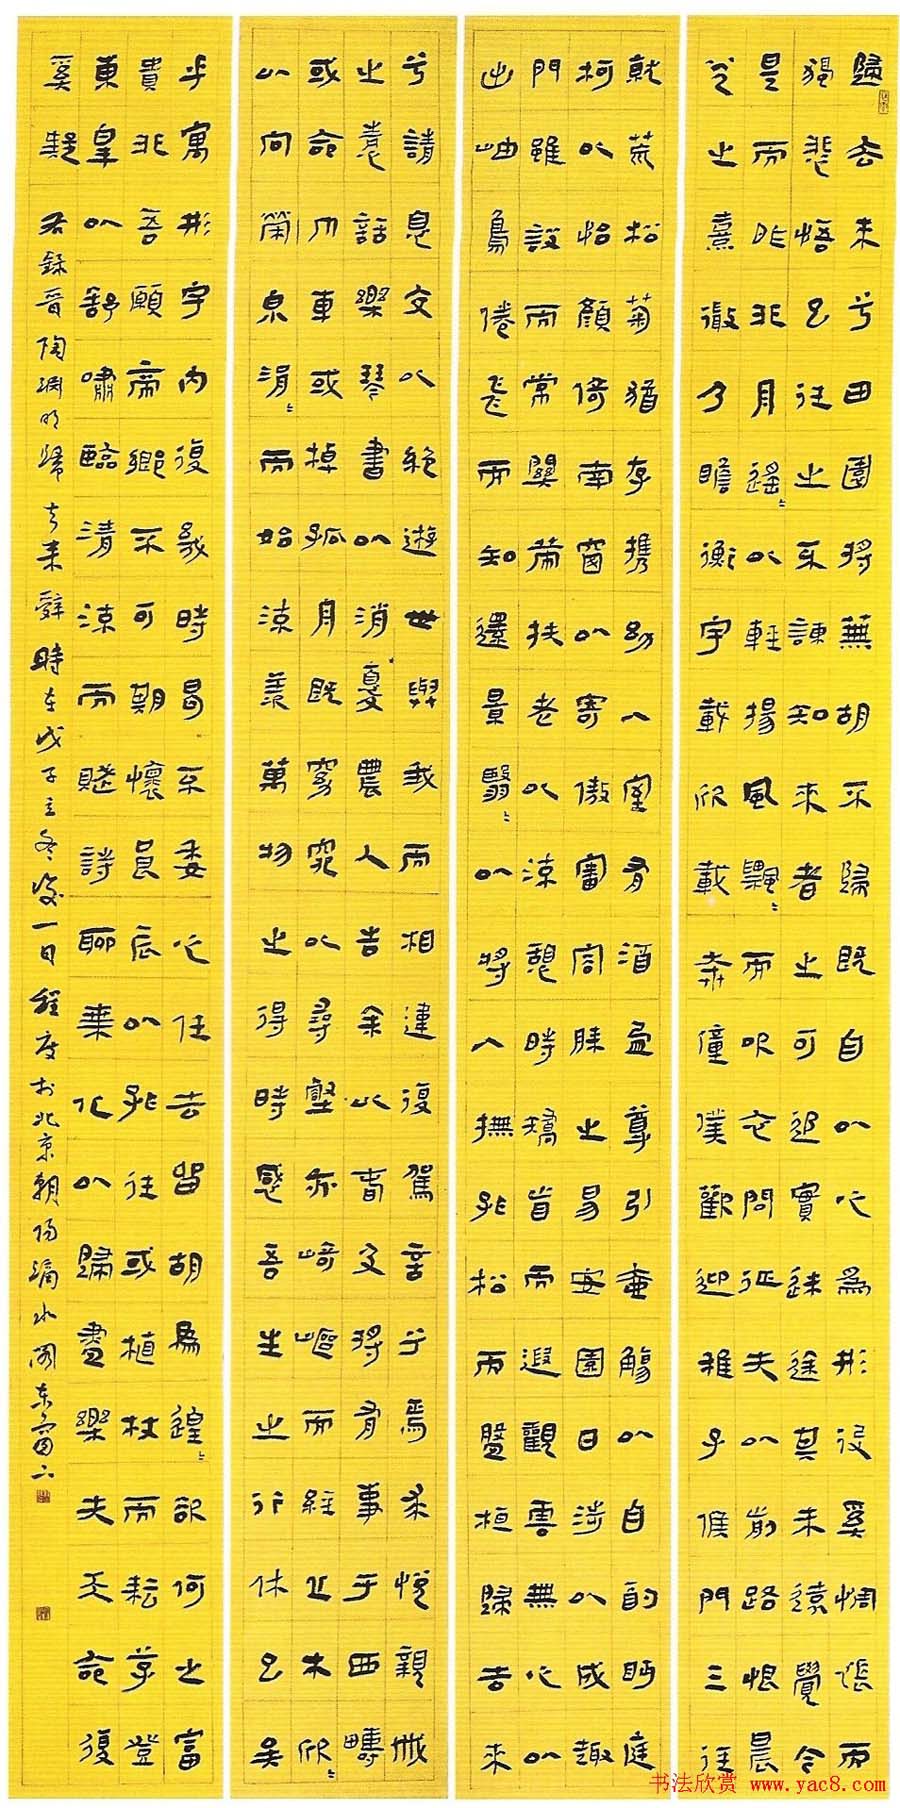 歸去来兮田園将蕪胡不歸既自以心為形役奚惆悵而
獨悲悟已往之不諫知来者之可追實迷途其未遠覺今
是而昨非舟遙〻以輕揚風飄〻而吹衣問征夫以前路恨晨
光之熹微乃瞻衡宇載欣載奔僮僕歡迎稚子候門三徑
就荒松菊猶存携幼入室有酒盈尊引壺觴以自酌眄庭
柯以怡顏倚南窗以寄傲審容膝之易安園日涉以成趣
門雖設而常關策扶老以流憩時矯首而遐觀雲無心以
出岫鳥倦飛而知還景翳〻以将入撫孤松而盤桓歸去来
兮請息交以絶遊世與我而相違復駕言兮焉求悅親戚
之情話樂琴書以消憂農人告余以春及将有事于西疇
或命巾車或棹孤舟既窈窕以尋壑亦崎嶇而經丘木欣〻
以向榮泉涓〻而始流羨萬物之得時感吾生之行休已矣
乎寓形宇内復幾時曷不委心任去留胡為遑〻欲何之富
貴非吾願帝鄉不可期懷良辰以孤往或植杖而耘耔登
東皋以舒嘯臨清流而賦詩聊乘化以歸盡樂夫天命復
奚疑 右録晋陶渊明歸去来辭時在戊子立冬後一日程度於北京朝陽滴水閣东窗下
书法欣赏 www.yac8.com